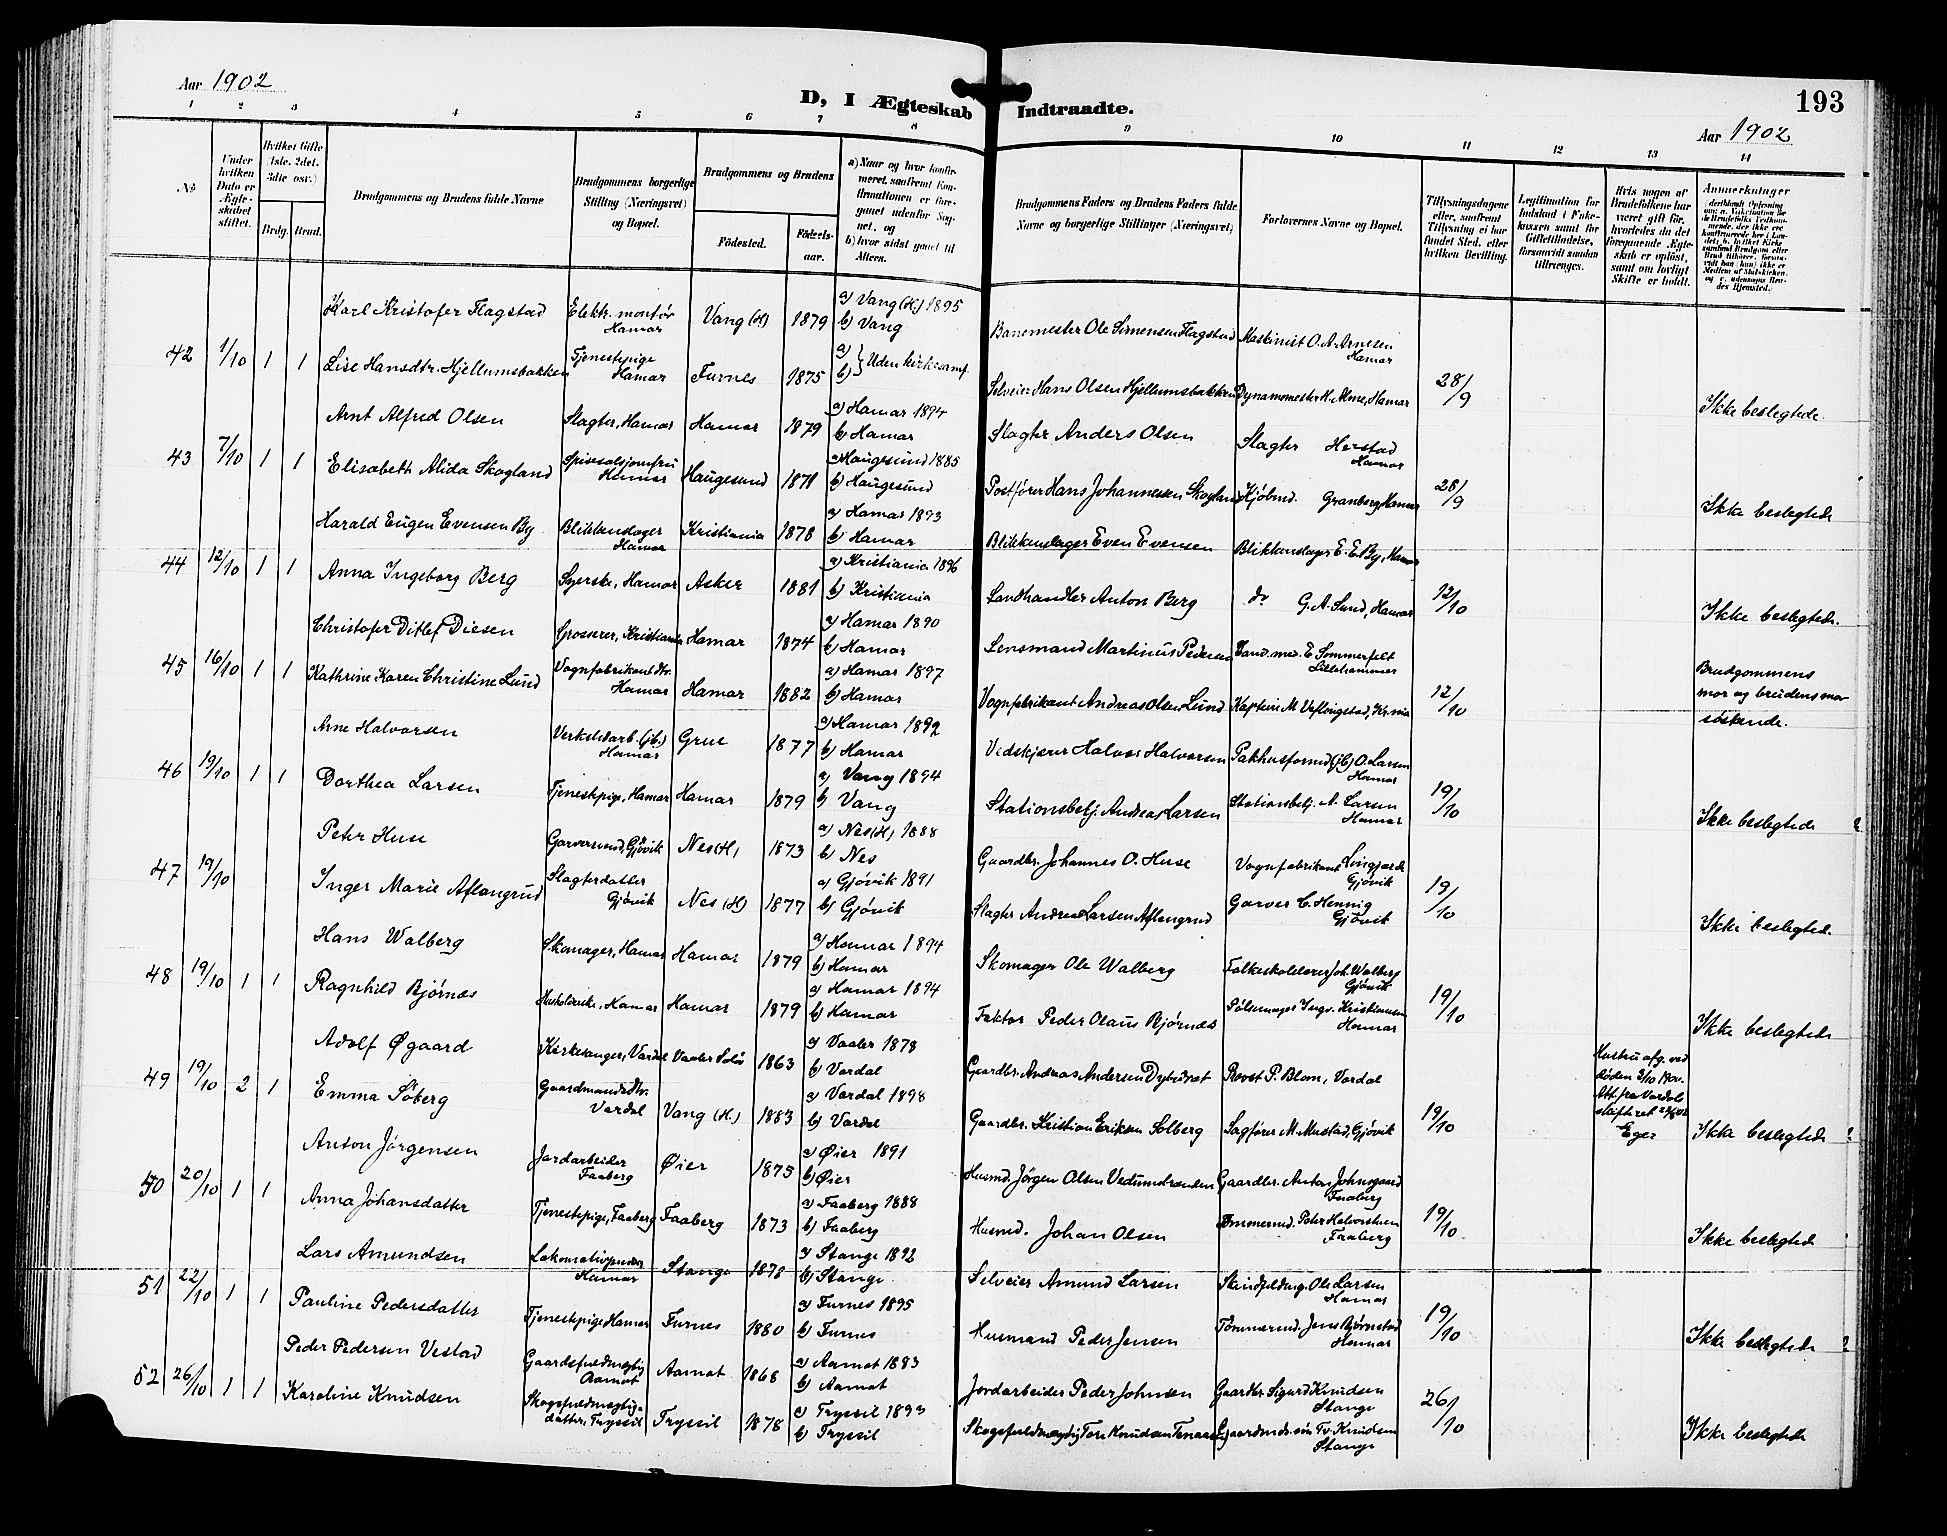 Aar 1902
D, I Ægteskab Indtraadte.
193
Aar 1902
1 2 3 4 5 6 7 8 9 10 11 12 13 14
No
Under hvilken Dato er Ægteskabet stiftet.
Hvilket Gifte (1ste, 2det, 3die osv.)
Brdg. Brud.
Brudgommens og Brudens fulde Navne
Brudgommens borgerlige Stilling (Næringsvei) og Bopæl.
Brudgommens og Brudens
Fødested.
Fødselsaar.
a) Naar og hvor konfirmeret, saafremt Konfirmationen er foregaaet udenfor Sognet, og
b) hvor sidst gaaet til Alters.
Brudgommens Faders og Brudens Faders fulde Navne og borgerlige Stillinger (Næringsvei)
Forlovernes Navne og Bopæl.
Tillysningsdagene eller, saafremt Tillysning ei har fundet Sted, efter hvilken Bevilling.
Legitimation for Indskud i Enkekassen samt for Giftetilladelse, forsaavidt saadan tiltrænges.
Hvis nogen af Brudefolkene har været gift før, hvorledes da det foregaaende Ægteskab er opløst, samt om lovligt Skifte er holdt.
Anmærkninger
Karl Kristofer Flagstad Elektr. montør Hamar Vang (H) 1879 a) Vang (H) 1895 b) Vang Banemester Ole Simensen Flagstad Maskinist O. A. Arnesen Hamar
42 1/10 1 1 Lise Hansdtr. Hjellumsbakken Tjenestepige Hamar Furnes 1875 a) b) Uden kirkesamf. Selveier Hans Olsen Hjellumsbakken Dynamomester M. Alme, Hamar 28/9 Ikke beslegtede.
Arnt Alfred Olsen Slagter, Hamar Hamar 1879 a) Hamar 1894 b) Hamar Slagter Anders Olsen Slagter Herstad Hamar
43 7/10 1 1 Elisabeth Alida Skogland Spisesalsjomfru Hamar Haugesund 1871 a) Haugesund 1885 b) Haugesund Postfører Hans Johannesen Skogland Kjøbmd. Granberg, Hamar 28/9 Ikke beslegtede
Harald Eugen Evensen By Blikkenslager Hamar Kristiania 1878 a) Hamar 1893 b) Hamar Blikkenslager Even Evensen Blikkenslager E. E. By, Hamar
44 12/10 1 1 Anna Ingeborg Berg Syerske, Hamar Asker 1881 a) Kristiania 1896 b) Kristiania Landhandler Anton Berg do G. A. Lund, Hamar 12/10 Ikke beslegtede.
Christofer Ditlef Diesen Grosserer, Kristiania Hamar 1874 a) Hamar 1890 b) Hamar Lensmand Martinus Pedersen Cand. med. E. Sommerfelt Lillehammer
45 16/10 1 1 Kathrine Karen Christine Lund Vognfabrikant dtr. Hamar Hamar 1882 a) Hamar 1897 b) Hamar Vognfabrikant Andreas Olsen Lund Kaptein M. Veflingstad, Kr.nia 12/10 Brudgommens mor og brudens mor søskende.
Arne Halvorsen Verkstedarb. (jb.) Hamar Grue 1877 a) Hamar 1892 b) Hamar Vedskjærer Halvor Halvorsen Pakhusformd (jb) O. Larsen Hamar
46 19/10 1 1 Dorthea Larsen Tjenestepige, Hamar Hamar 1879 a) Vang 1894 b) Vang Stationsbetj. Andreas Larsen Stationsbetj. A. Larsen Hamar 19/10 Ikke beslegtede
Peter Huse Garversvend, Gjøvik Nes (H) 1873 a) Nes (H) 1888 b) Nes Gaardbr. Johannes O. Huse Vognfabrikant Lingjærde Gjøvik
47 19/10 Inger Marie Aflangrud Slagterdatter Gjøvik Nes (H) 1877 a) Gjøvik 1891 b) Gjøvik Slagter Andreas Larsen Aflangrud Garver C. Hennig Gjøvik 19/10 Ikke beslegtede.
Hans Walberg Skomager, Hamar Hamar 1879 a) Hamar 1894 b) Hamar Skomager Ole Walberg Folkeskolelærer Joh. Walberg Gjøvik
48 19/10 1 1 Ragnhild Bjørnæs Husholderske, Hamar Hamar 1879 a) Hamar 1894 b) Hamar Faktor Peder Olaus Bjørnæs Pølsemager Ingv. Kristiansen Hamar 19/10 Ikke beslegtede
Adolf Øgaard Kirkesanger, Vardal Vaaler Solør 1863 a) Vaaler 1878 b) Vardal Gaardbr. Andreas Andersen Provst P. Blom, Vardal
49 19/10 2 1 Emma Solberg Gaardmandsdtr. Vardal Vang (H.) 1883 a) Vardal 1898 b) Vardal Gaardbr. Kristian Eriksen Solberg Sagfører M. Mustad, Gjøvik 19/10 Hustru afg. ved døden Att. fra Vardal skifteret Eger Ikke beslegtede
Anton Jørgensen Jordarbeider Faaberg Øier 1875 a) Øier 1891 b) Øier Husmd. Jörgen Olsen Vedumstranden Gaardbr. Anton Johnsgaard Faaberg
50 20/10 1 1 Anna Johansdatter Tjenestepige, Faaberg Faaberg 1873 a) Faaberg 1888 b) Faaberg Husmd. Johan Olsen Tømmermd. Peter Halvorsen Faaberg 19/10 Ikke beslegtede
Lars Amundsen Lokomotivpudser Hamar Stange 1878 a) Stange 1892 b) Stange Selveier Amund Larsen Skindfeldmgr. Ole Larsen Hamar
51 22/10 1 1 Pauline Pedersdatter Tjenestepige Hamar Furnes 1880 a) Furnes 1895 b) Furnes Husmand Peder Jensen Tømmermd. Jens Bjørnstad Hamar 19/10 Ikke beslegtede
Peder Pedersen Vestad Gaardsfuldmegtig Aamot Aamot 1868 a) Aamot 1883 b) Aamot Jordarbeider Peder Johnsen Gaardbr. Sigurd Knudsen Stange
52 26/10 1 1 Karoline Knudsen Skogsfuldmegtigdatter, Trysil Trysil 1878 a) Trysil 1893 b) Trysil Skogsfuldmegtig Tore Knudsen Gaardmds. søn To. Knudsen Stange 26/10 Ikke beslegtede